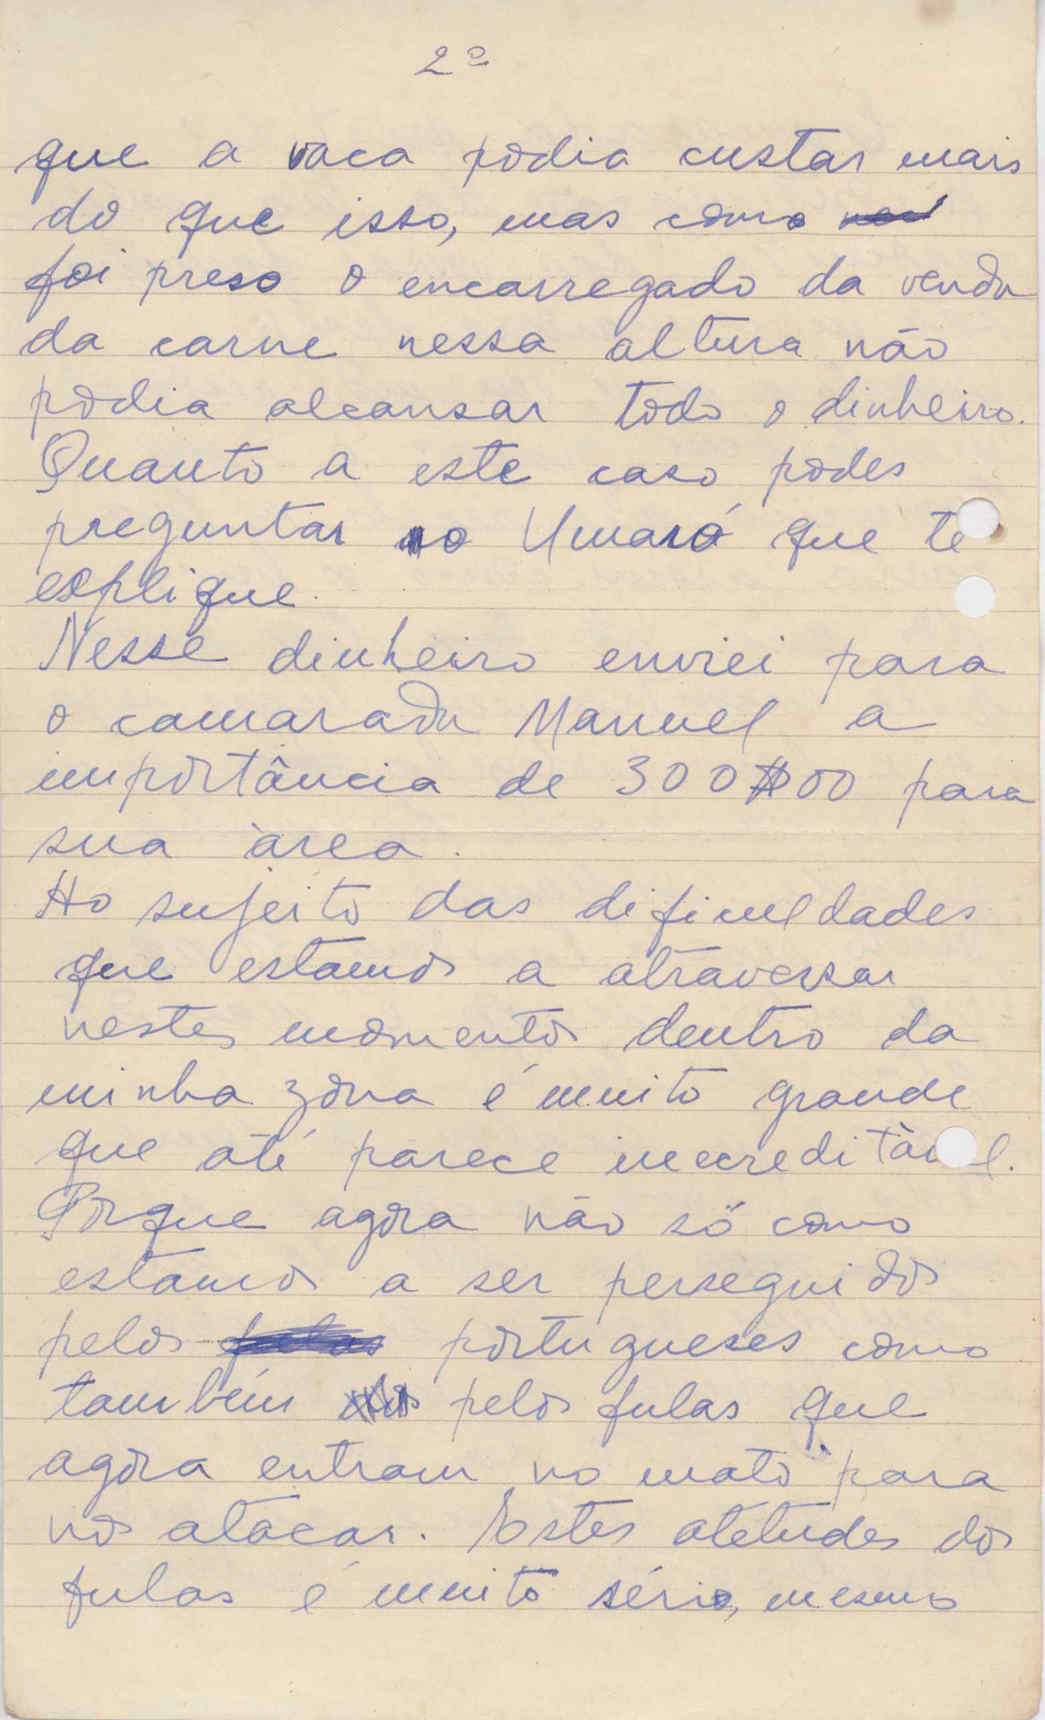 2º
que a vaca podia custar mais
do que isso, mas como
foi preso o encarregado da venda
da carne nessa altura não
podia alcansar todo o dinheiro.
Quanto a este caso podes
preguntar ao Umaró que te
esplique.
Nesse dinheiro enviei para
o camarada Manuel a
importância de 300$00 para
sua àrea.
Ao sujeito das dificuldades
que estamos a atravessar
nestes momentos dentro da
minha zona é muito grande
que até parece increditàvel.
Porque agora não só como
estamos a ser perseguidos
pelos portugueses como
também pelos fulas que
agora entram no mato para
nos atacar. Estes atetudes dos
fulas é muito série, mesmo